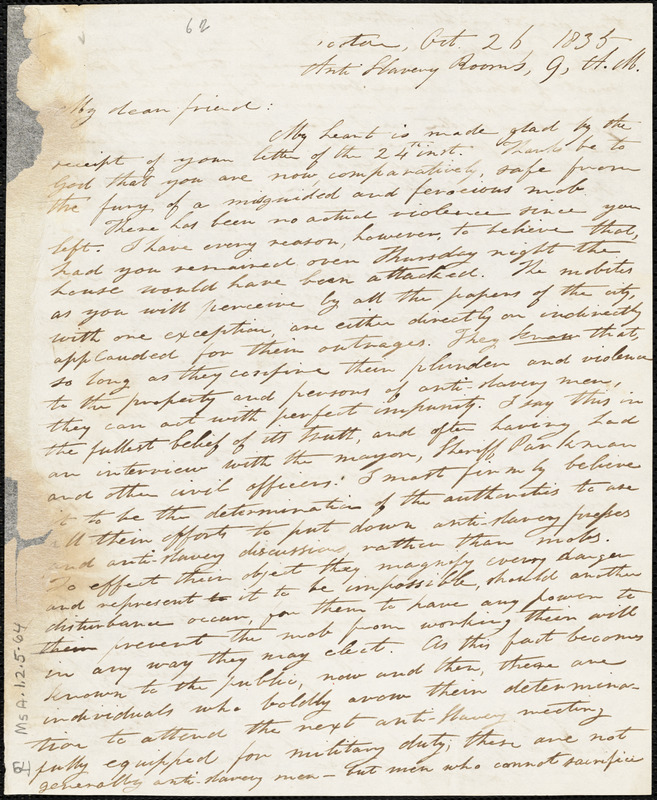 62
oston, Oct. 26 1835
Anti Slavery Rooms, 9, A.M.
My dear friend:
My heart is made glad by the
receipt of your letter of the 24th inst. Thanks be to
God that you are now, comparatively, safe from
the fury of a misguided and ferocious mob.
There has been no actual violence since you
left. I have every reason, however, to believe that,
had you remained over Thursday night the
house would have been attacked. The mobites
as you will perceive by all the papers of the city,
with one exception, are either directly or indirectly
applauded for their outrages. They know that,
so long as they confine their plunder and violence
to the property and persons of anti-slavery men,
they can act with perfect impunity. I say this in
the fullest belief of its truth, and after having had
an interview with the mayor, Sheriff Parkman
and other civil officers. I most firmly believe
it to be the determination of the authorities to use
all their efforts to put down anti-slavery presses
and anti-slavery discussions, rather than mobs.
To effect their object they magnify every danger
and represent it to be impossible, should another
disturbance occur, for them to have any power to
them prevent the mob from working their will
in any way they may elect. As this fact becomes
known to the public, now and then, there are
individuals who boldly avow their determina-
tion to attend the next anti-slavery meeting
fully equipped for military duty; these are not
generally anti-slavery men - but men who cannot sacrifice
Ms A.1.2.5.64